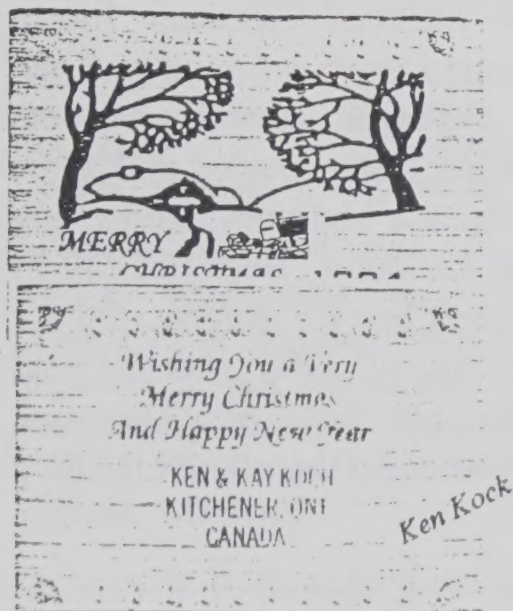 MERRY
CHRISTMAS 1994
Wishing You a Very
Merry Christmas
And Happy New Year
KEN & KAY KOCH
KITCHENER, ONT
CANADA
Ken Kock